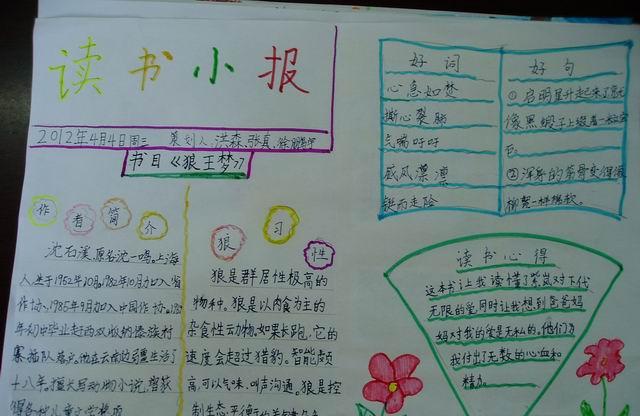 读书小报
2012年4月4日周三 策划人、洪森、张真、
书目《狼王梦》
作者简介
沈石溪,原名沈一鸣。上海
人,生于1952年10月。1982年10月加入省
作协、1985年9月加入中国作协。
年初中毕业赴西双版纳傣族村
寨插队落户。他在云南边疆生活了
十八年。擅长写动物小说,曾获
得多
狼习性
狼是群居性极高的
物种。狼是以肉食为主的
杂食性云动物。如果长跑,它的
速度会超过猎豹。智能颇
高,可以气味、叫声沟通。狼是控
制生态平衡的
好词
心急如焚
撕心裂肺
气喘吁吁
威风凛凛
铤而走险
好句
①启明星升起来了
像黑缎子上缀着一粒
②浑身的筋骨变得像
柳絮一样
读书心得
这本书让我读懂了紫岚对下代
无限的爱,同时让我想到爸爸妈
妈对我的爱是无私的。他们为
我付出了无数的心血和
精力。